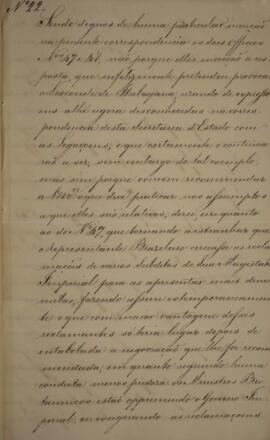 Nº 22.
Sendo dignos de huma particular menção
na presente correspondencia os dous Officios
Nºs 47 e 48, não porque elles mereção a res
posta, que infelizmente pretendeu provocar
o Visconde de Itabayana, usando de expressões
athe agora desconhecidas na corres
pondencia desta Secretaria d'Estado com
as Legaçoens, o que certamente o continua
rão a ser, sem embargo de tal exemplo,
mas sim porque convem recommendar
a V.Mce. o que deve praticar nos assumptos
a que elles são relativos, direi, em quanto
ao do Nº 47, que tornando a estranhar que
o Representante Brazileiro cerceasse as recla
mações de varios Subditos de Sua Magestade
Imperial para as apresentar mais dimi
nutas, fazendo assim extemporaneamen
te o que com maior vantagem desses
reclamantes só teria lugar depois de
entabolada a negociação que lhe foi recom
mendada, em quanto seguindo huma
conducta menos piedosa os Ministros Bri
tannicos estão opprimindo o Governo Im
perial, exagerando as reclamaçoens